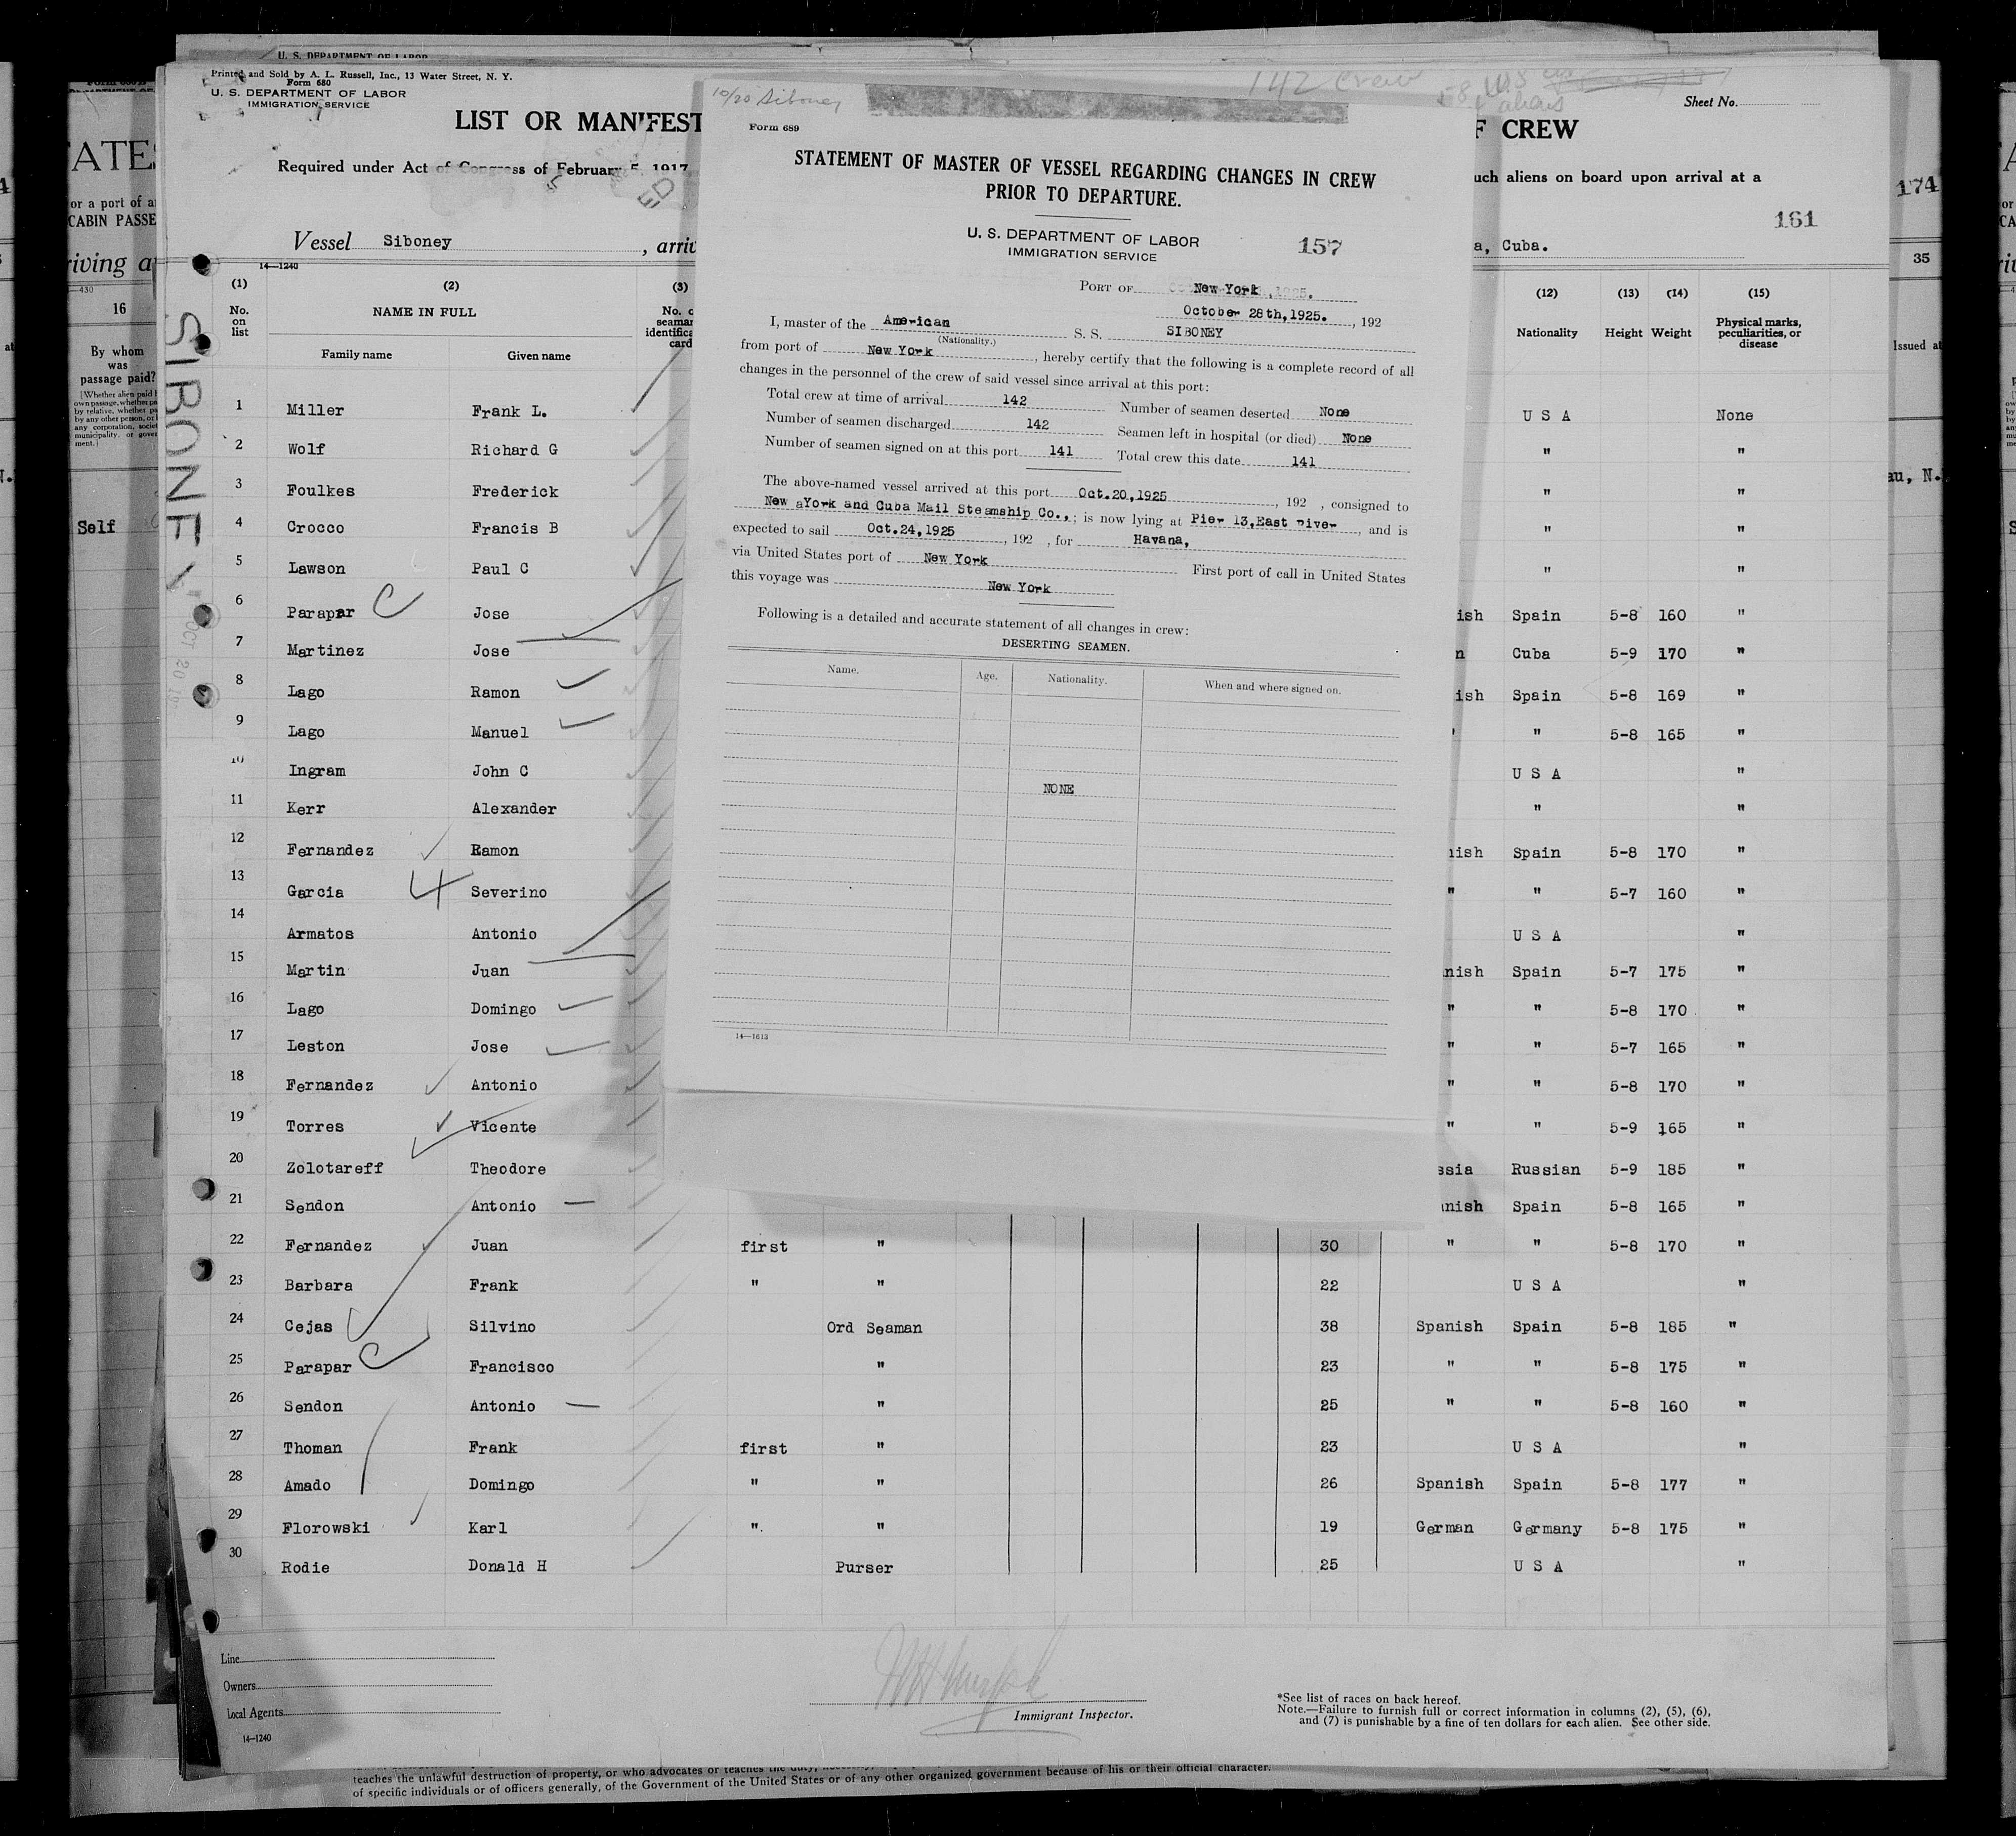 U. S. DEPARTMENT OF LABOR
Printed and Sold by A. L. Russell, Inc., 13 Water Street, N. Y.
Form 680
U. S. DEPARTMENT OF LABOR
IMMIGRATION SERVICE
LIST OR MANIFEST
Required under Act of Congress of February 5, 1917
ED
Vessel Siboney , arriv
142 Crew
58 U.S
aliens
Sheet No.
F CREW
uch aliens on board upon arrival at a
161
a, Cuba.
10/20 Siboney
Form 689
STATEMENT OF MASTER OF VESSEL REGARDING CHANGES IN CREW
PRIOR TO DEPARTURE.
U. S. DEPARTMENT OF LABOR
IMMIGRATION SERVICE
157
PORT OF New York , 1925.
October 28th,1925. , 192
I, master of the American S. S. SIBONEY
(Nationality.)
from port of New York , hereby certify that the following is a complete record of all
changes in the personnel of the crew of said vessel since arrival at this port:
Total crew at time of arrival 142 Number of seamen deserted None
Number of seamen discharged 142 Seamen left in hospital (or died) None
Number of seamen signed on at this port 141 Total crew this date 141
The above-named vessel arrived at this port Oct.20,1925 , 192 , consigned to
New aYork and Cuba Mail Steamship Co., ; is now lying at Pier 13,East River , and is
expected to sail Oct.24,1925 , 192 , for Havana,
via United States port of New York First port of call in United States
this voyage was New York
Following is a detailed and accurate statement of all changes in crew:
DESERTING SEAMEN.
Name. Age. Nationality. When and where signed on.
NONE
14—1613
14—1240
(1) (2) (3) (12) (13) (14) (15)
No. on list
NAME IN FULL
Family name Given name
No. o
seaman
identifica
card
Nationality Height Weight Physical marks, peculiarities, or disease
1 Miller Frank L. U S A None
2 Wolf Richard G " "
3 Foulkes Frederick " "
4 Crocco Francis B " "
5 Lawson Paul C " "
6 Parapar Jose ish Spain 5-8 160 "
7 Martinez Jose n Cuba 5-9 170 "
8 Lago Ramon ish Spain 5-8 169 "
9 Lago Manuel " " 5-8 165 "
10 Ingram John C U S A "
11 Kerr Alexander " "
12 Fernandez Ramon nish Spain 5-8 170 "
13 Garcia Severino " " 5-7 160 "
14 Armatos Antonio U S A "
15 Martin Juan nish Spain 5-7 175 "
16 Lago Domingo " " 5-8 170 "
17 Leston Jose " " 5-7 165 "
18 Fernandez Antonio " " 5-8 170 "
19 Torres Vicente " " 5-9 165 "
20 Zolotareff Theodore ssia Russian 5-9 185 "
21 Sendon Antonio nish Spain 5-8 165 "
22 Fernandez Juan first " 30 " " 5-8 170 "
23 Barbara Frank " " 22 U S A "
24 Cejas Silvino Ord Seaman 38 Spanish Spain 5-8 185 "
25 Parapar Francisco " 23 " " 5-8 175 "
26 Sendon Antonio " 25 " " 5-8 160 "
27 Thoman Frank first " 23 U S A "
28 Amado Domingo " " 26 Spanish Spain 5-8 177 "
29 Florowski Karl " " 19 German Germany 5-8 175 "
30 Rodie Donald H Purser 25 U S A "
SIBONEY
OCT 20 19
Line
Owners
Local Agents
14—1240
Immigrant Inspector.
*See list of races on back hereof.
Note.—Failure to furnish full or correct information in columns (2), (5), (6),
and (7) is punishable by a fine of ten dollars for each alien. See other side.
teaches the unlawful destruction of property, or who advocates or teaches the duty,
of specific individuals or of officers generally, of the Government of the United States or of any other organized government because of his or their official character.
ATE
or a port of a
CABIN PASSE
riving a
—430
16
By whom
was
passage paid?
Self
174
35
Issued at
au, N.